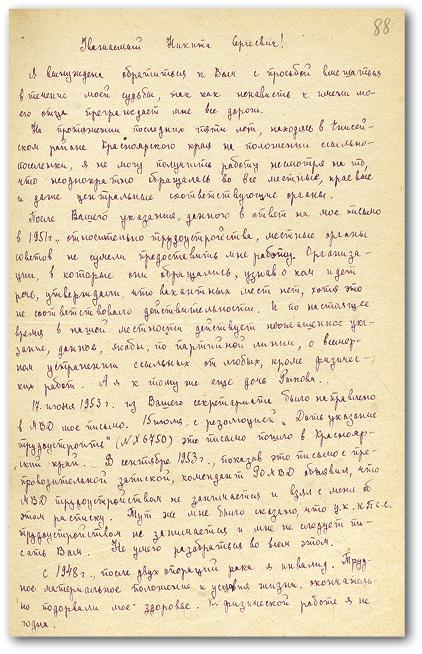 88
Уважаемый Никита Сергеевич!
Я вынуждена обратиться к Вам с просьбой вмешаться
в течение моей судьбы, так как ненависть к имени мо-
его отца преграждает мне все дороги.
На протяжении последних пяти лет, находясь в Енисей-
ском районе Красноярского края на положении ссыльно-
поселенки, я не могу получить работу несмотря на то,
что неоднократно обращалась во все местные, краевые
и даже центральные соответствующие органы.
После Вашего указания, данного в ответ на мое письмо
в 1951г., относительно трудоустройства, местные органы
советов не сумели предоставить мне работу. Организа-
ции, в которые они обращались, узнав о ком идет
речь, утверждали, что вакантных мест нет, хотя это
не соответствовало действительности. И по настоящее
время в нашей местности действует неписанное ука-
зание, данное, якобы, по партийной линии, о всемер-
ном устранении ссыльных от любых, кроме физичес-
ких работ. А я к тому же еще дочь Рыкова..
17. июня 1953г. из Вашего секретариата было направлено
в МВД мое письмо. 15 июля, с резолюцией „Дать указание
трудоустроить" (№ X 6750) это письмо пошло в Краснояр-
ский край. В сентябре 1953г., показав это письмо с пре-
проводительной запиской, комендант РОМВД объявил, что
МВД трудоустройством не занимается и взял с меня в
этом расписку. Тут же мне было сказано, что ц.к. К.П.С.С.
трудоустройством не занимается и мне не следует пи-
сать Вам. Не умею разобраться во всем этом.
С 1948г., после двух операций рака я инвалид. Труд-
ное материальное положение и условия жизни окончатель-
но подорвали мое здоровье. К физической работе я не
годна.